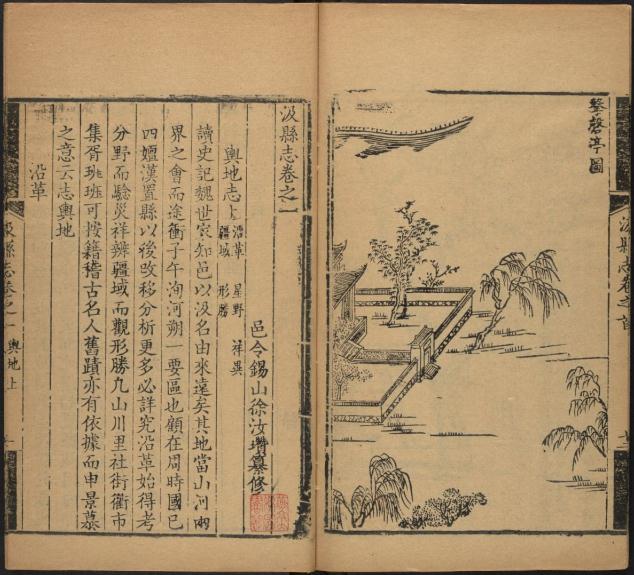 擊磬亭圖
汲縣志卷之首
汲縣志卷之一
邑令錫山徐汝瓚纂修
輿地志上 沿革 星野 祥異
疆域 形勝
讀史記魏世家知邑以汲名由來遠矣其地當山河兩
界之會而途衝子午洵河朔一要區也顧在周時國已
四嬗漢置縣以後改移分析更多必詳究沿革始得考
分野而驗災祥辨疆域而觀形勝九山川里社街衢市
集胥班班可按籍稽古名人舊蹟亦有依據而申景慕
之意云志輿地
沿革
汲縣志卷之一 輿地上